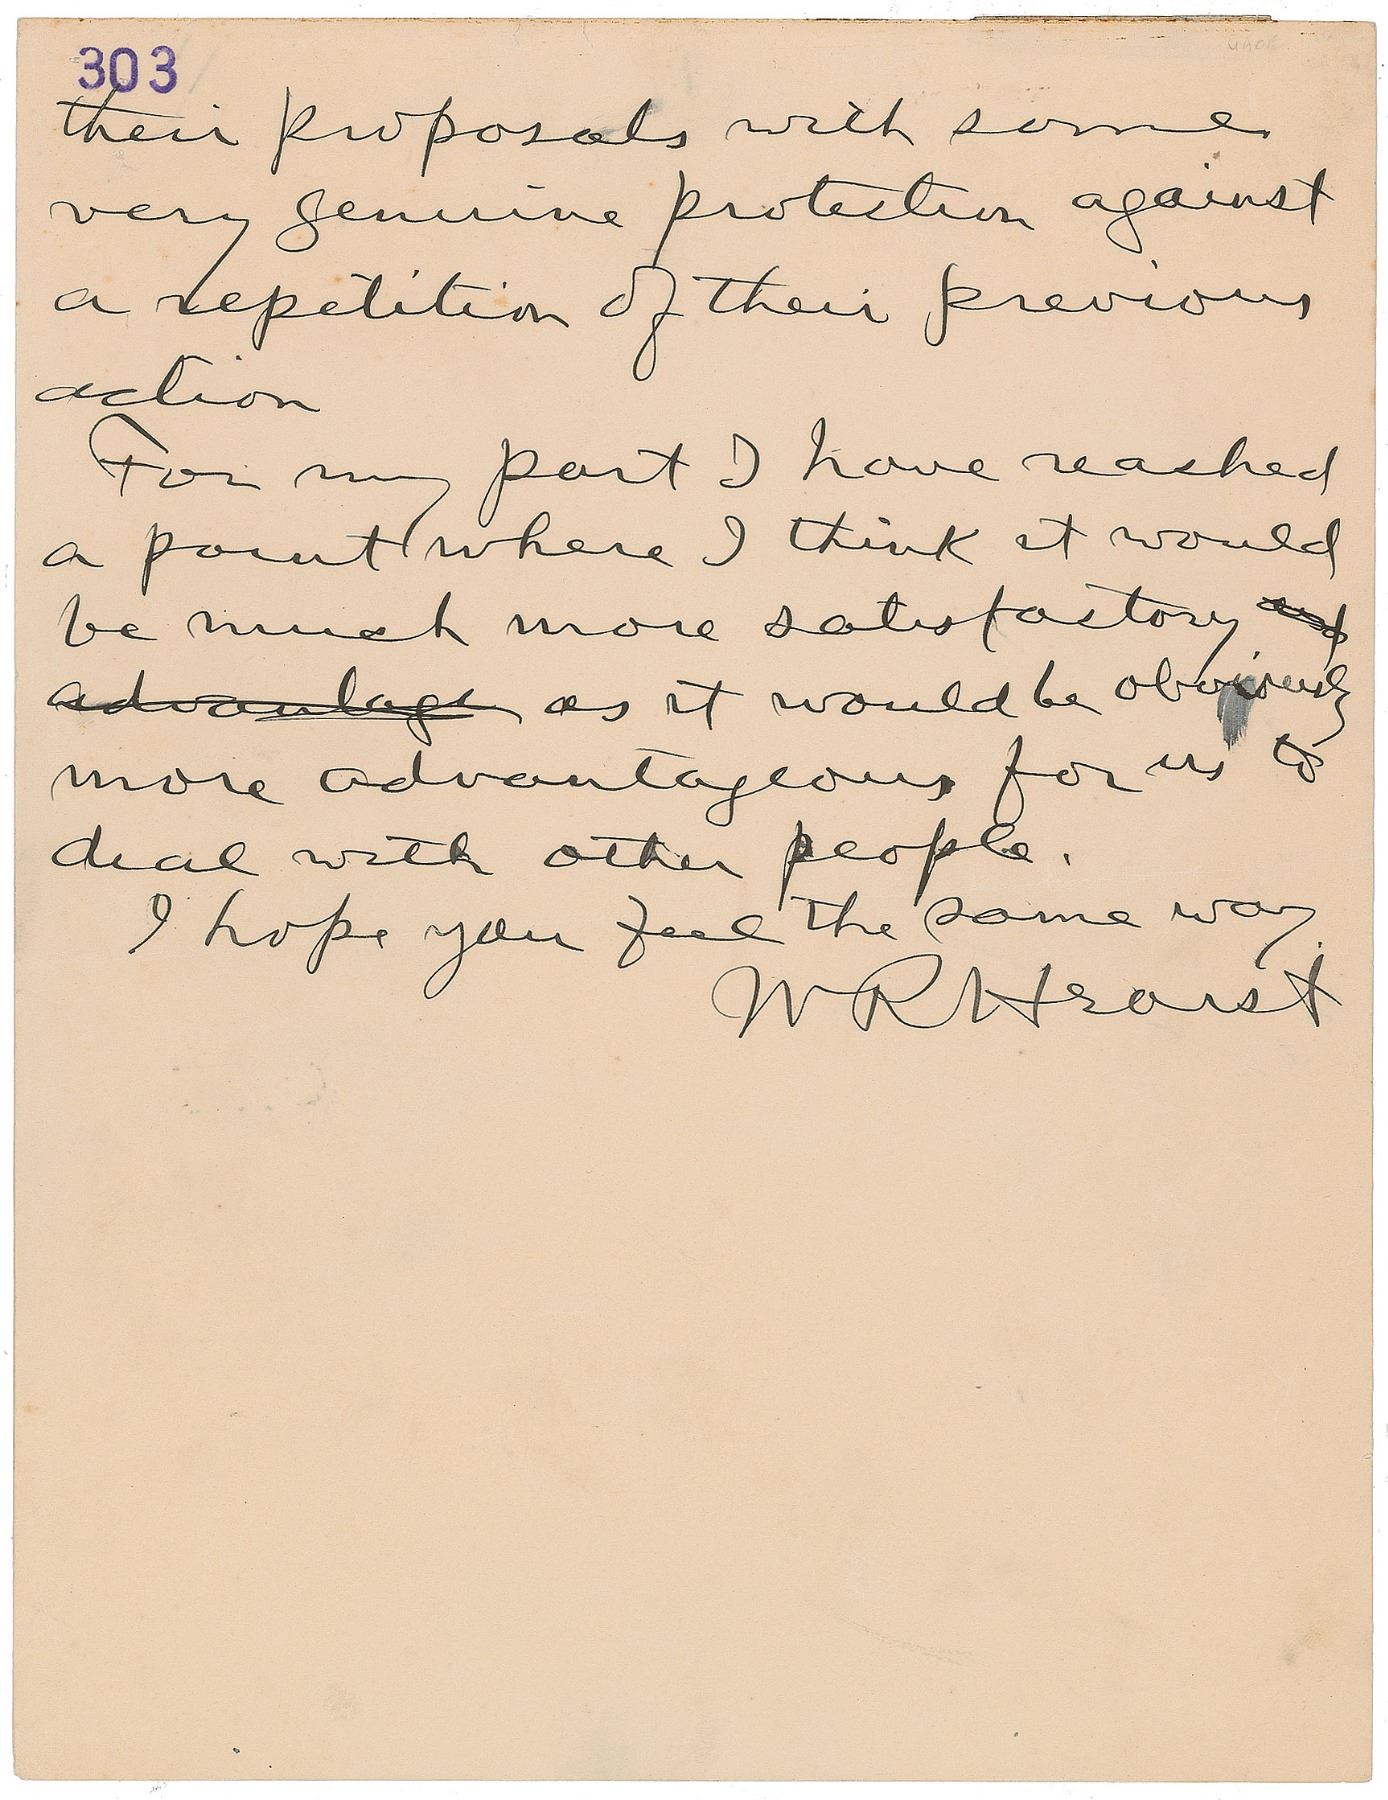 303
their proposals with some
very genuine protection against
a repetition of their previous
action
For my part I have reached
a point where I think it would
be much more satisfactory and
advantage as it would be obviously
more advantageous for us to
deal with other people.
I hope you feel the same way.
W R Hearst